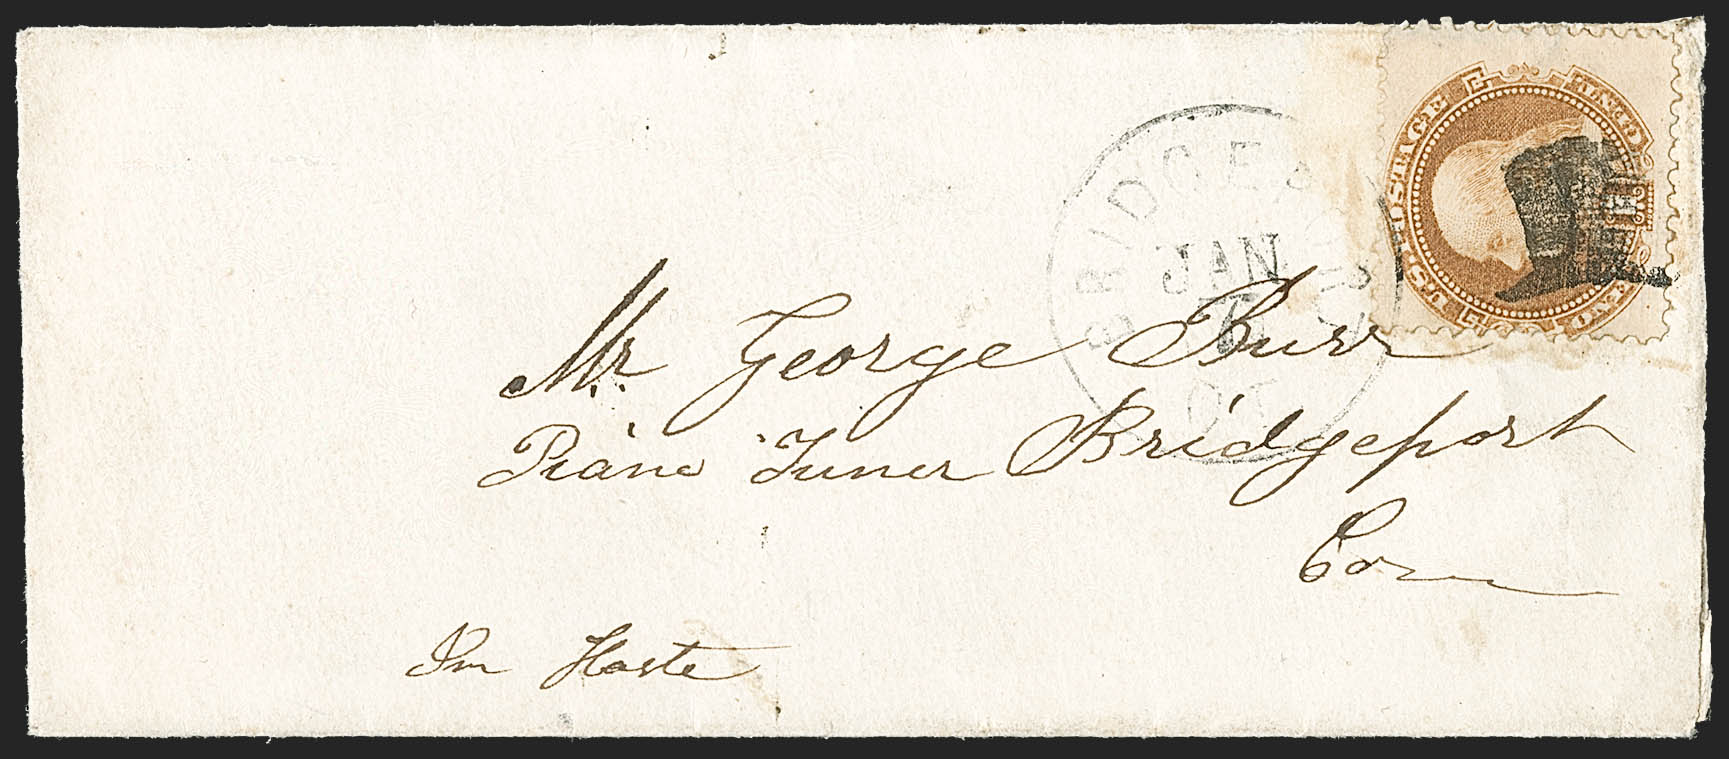 U.S. POSTAGE
ONE CENT
BRIDGEPORT
JAN
CT
Mr. George Burr
Piano Tuner Bridgeport
Conn
In Haste